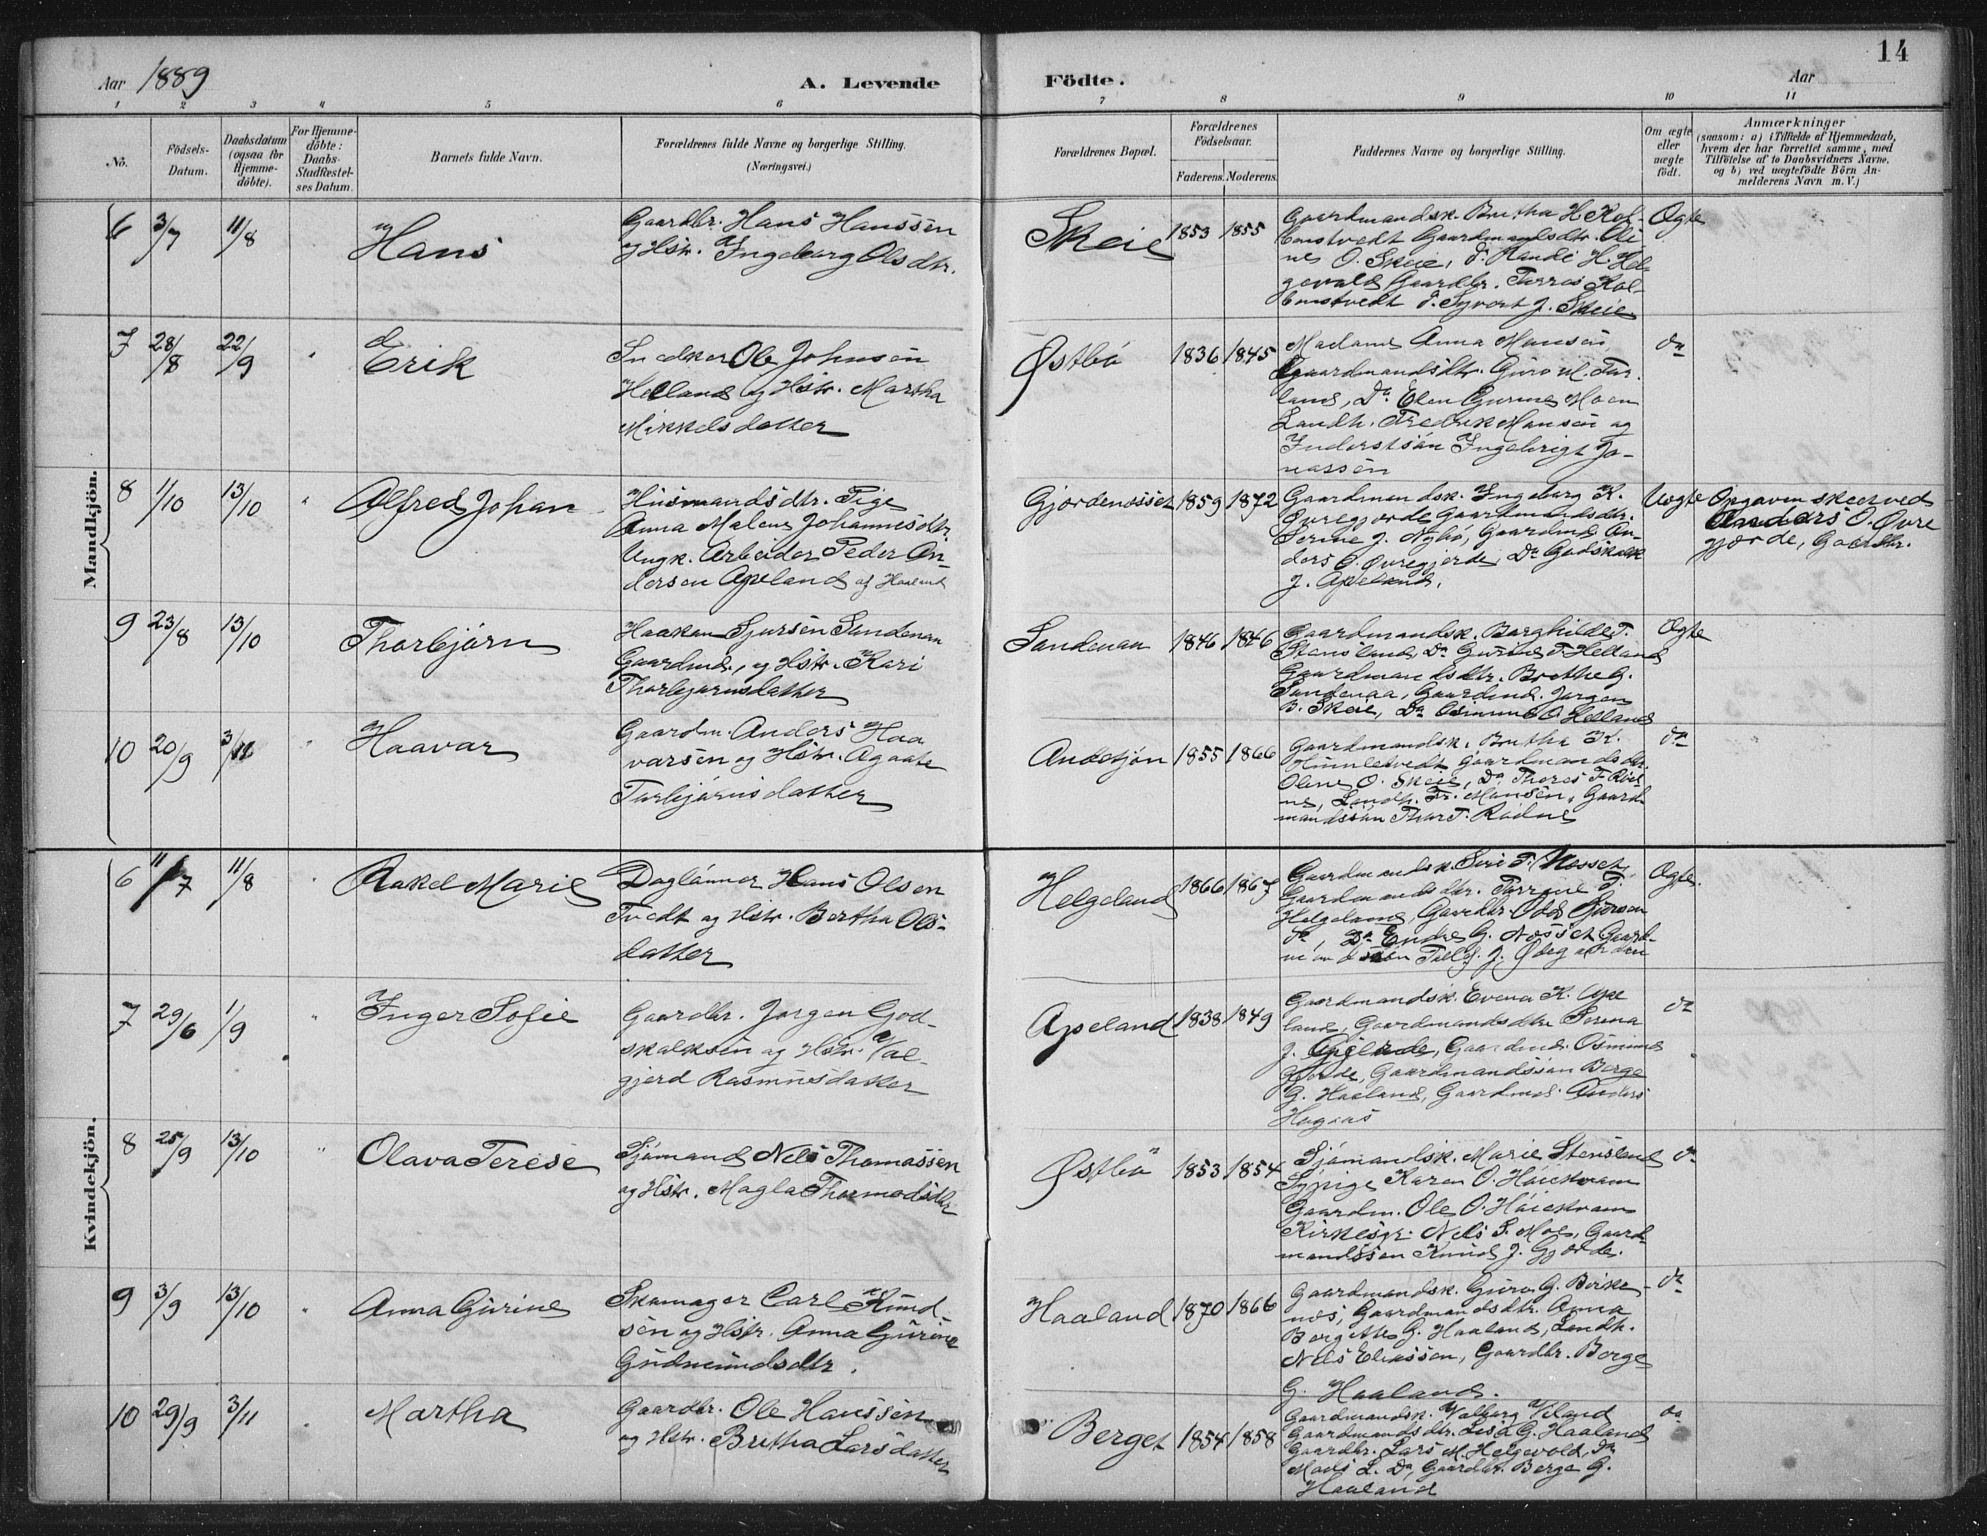 14
Aar 1889
A. Levende Födte.
Aar
1 2 3 4 5 6 7 8 9 10 11
No.
Födsels-
Datum.
Daabsdatum
(ogsaa for
Hjemme-
döbte).
For Hjemme-
döbte:
Daabs-
Stadfæstel-
ses Datum.
Barnets fulde Navn.
Forældrenes fulde Navne og borgerlige Stilling.
(Næringsvei.)
Forældrenes Bopæl.
Forældrenes
Födselsaar.
Faderens. Moderens.
Faddernes Navne og borgerlige Stilling.
Om ægte
eller
uægte
födt.
Anmærkninger
(saasom: a) i Tilfælde af Hjemmedaab,
hvem der har forrettet samme, med
Tilföielse af to Daabsvidners Navne,
og b) ved uægtefödte Börn An-
melderens Navn m. V.)
Mandkjön.
6 3/7 11/8 Hans
Gaardbr. Hans Hanssen
og Hstr. Ingeborg Olsdtr.
Skeie 1853 1855
Gaardmandsk. Brutha H. Kol-
Gaardmandsdtr. Oli-
ne O. Skeie,
Gaardbr.
J. Skeie
Ægte
7 28/8 22/9 " Erik
Snedker Ole Johnsen
Helland og Hstr. Martha
Mikkelsdatter
Østbö 1836 1845
Madame Anna Monsen,
Gaardmandsdtr. Guro M.
land, Da Elen Gurine Moen
Landh. Fredrik Monsen og
Ingebrigt Jo-
nassen
do
8 11/10 13/10 " Alfred Johan
Husmandsdtr. Pige
Anna Malene Johannesdtr.
Ungk. Arbeider Peder An-
dersen Apeland af Haaland
Gjordenesset 1859 1872
Gaardmandsk. Ingeborg K.
Övregjorde Gaardmandsdtr.
Serine J. Nybö, Gaardmd. An-
ders O. Övregjerde, Da Godskalk
J. Apeland.
Uægte
Opgaven skeer ved
Anders O. Øvre
gjorde, Gaardbr.
9 23/8 13/10 Thorbjörn
Haakon Sjursen Sandenaa
Gaardmd., og Hstr. Kari
Thorbjörnsdatter
Sandenaa 1846 1846
Gaardmandsk. Borghilde T.
Stensland, Da Gurine T. Helland
Gaardmandsdtr. Brethe G.
Sandenaa, Gaardmd. Jorgen
B. Skeie, Da Osmund O. Helland
Ægte
10 20/9 3/11 " Haavar
Gaardm. Anders Haa
varsen og Hstr. Agaate
Torbjörnsdatter
1855 1866
Gaardmandsk. Brutha K.
Gaardmandsdtr.
Olene O. Skeie, Da Thores T. Röd-
ne, Landh. Fr. Monsen, Gaard-
mandssön Thor T. Rödne
do
Kvindekjön.
6 11/7 11/8 " Rakel Marie
Daglönner Hans Olsen
Tvedt og Hstr. Bertha Ols-
datter
Helgeland 1866 1867
Gaardmandsk. Siri T. Nesset
Gaardmandsdtr. Torrine T.
Helgeland, Gaardbr. Odd Sjursen
do, Da Endre G. Nesset Gaard-
mandssön J. Øvegaarden
Ægte.
7 29/6 1/9 " Inger Sofie
Gaardbr. Jorgen God-
skalksen og Hstr. Val-
gjerd Rasmusdatter
Apeland 1838 1849
Gaardmandsk. Evena K. Ape
land, Gaardmandsdtr Serina
J. Gaardmd. Osmund
Gjorde, Gaardmandssön Berge
G. Haaland, Gaardmd. Anders
Hogaas
do
8 25/9 13/10 " Olava Terese
Sjömand Nels Thomassen
og Hstr. Magla Thormodsdtr
Østbö 1853 1854
Sjömandsk. Marie Stensland
Sypige Karen O. Höiekvam
Gaardm. Ole O. Höiekvam
Kirkesgr. Nels S. Moe, Gaard-
mandssön Knud J. Gjorde.
do
9 3/9 13/10 " Anna Gurine
Skomager Carl Knud-
sen og Hstr. Anna Gurine
Gudmundsdtr.
Haaland 1870 1866
Gaardmandsk. Guro G. Birke-
nes, Gaardmandsdtr. Anna
Bergitte G. Haaland, Landh.
Nels Eliassen, Gaardbr. Berge
G. Haaland.
do
10 29/9 3/11 " Martha
Gaardbr. Ole Hanssen
og Hstr. Brutha Larsdatter
Berget 1854 1858
Gaardmandsk. Valborg Veland
Gaardmandsdtr. Lisa G. Haaland
Gaardbr. Lars M. Helgevold, Da
Mons L. Do, Gaardbr. Berge G.
Haaland
do